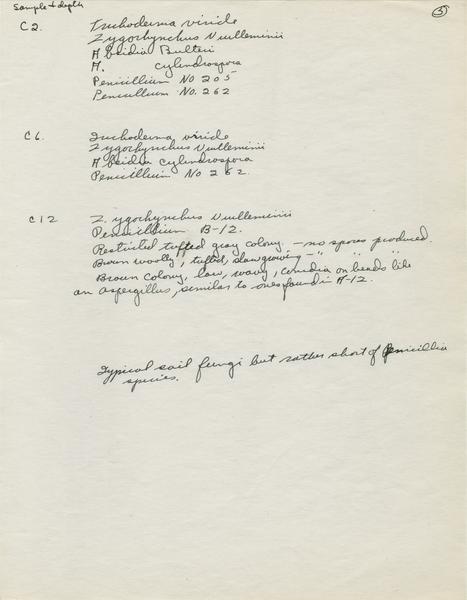 Sample & depth
5
C2. Trichoderma viride
Zygorhynchus Vuilleminii
Absidia Butleri
A. cylindrospora
Penicillium No 205
Penicillium No. 262
C6. Trichoderma viride
Zygorhynchus Vuilleminii
Absidia cylindrospora
Penicillium No 262.
C12 Zygorhynchus Vuilleminii
Penicillium B-12.
Restricted tufted gray colony. - no spores produced.
Brown woolly, tufted, slow growing - " " "
Brown colony, low, wavy, conidia on heads like
an Aspergillus, similar to ones found in A-12.
Typical soil fungi but rather short of Penicillia
species.